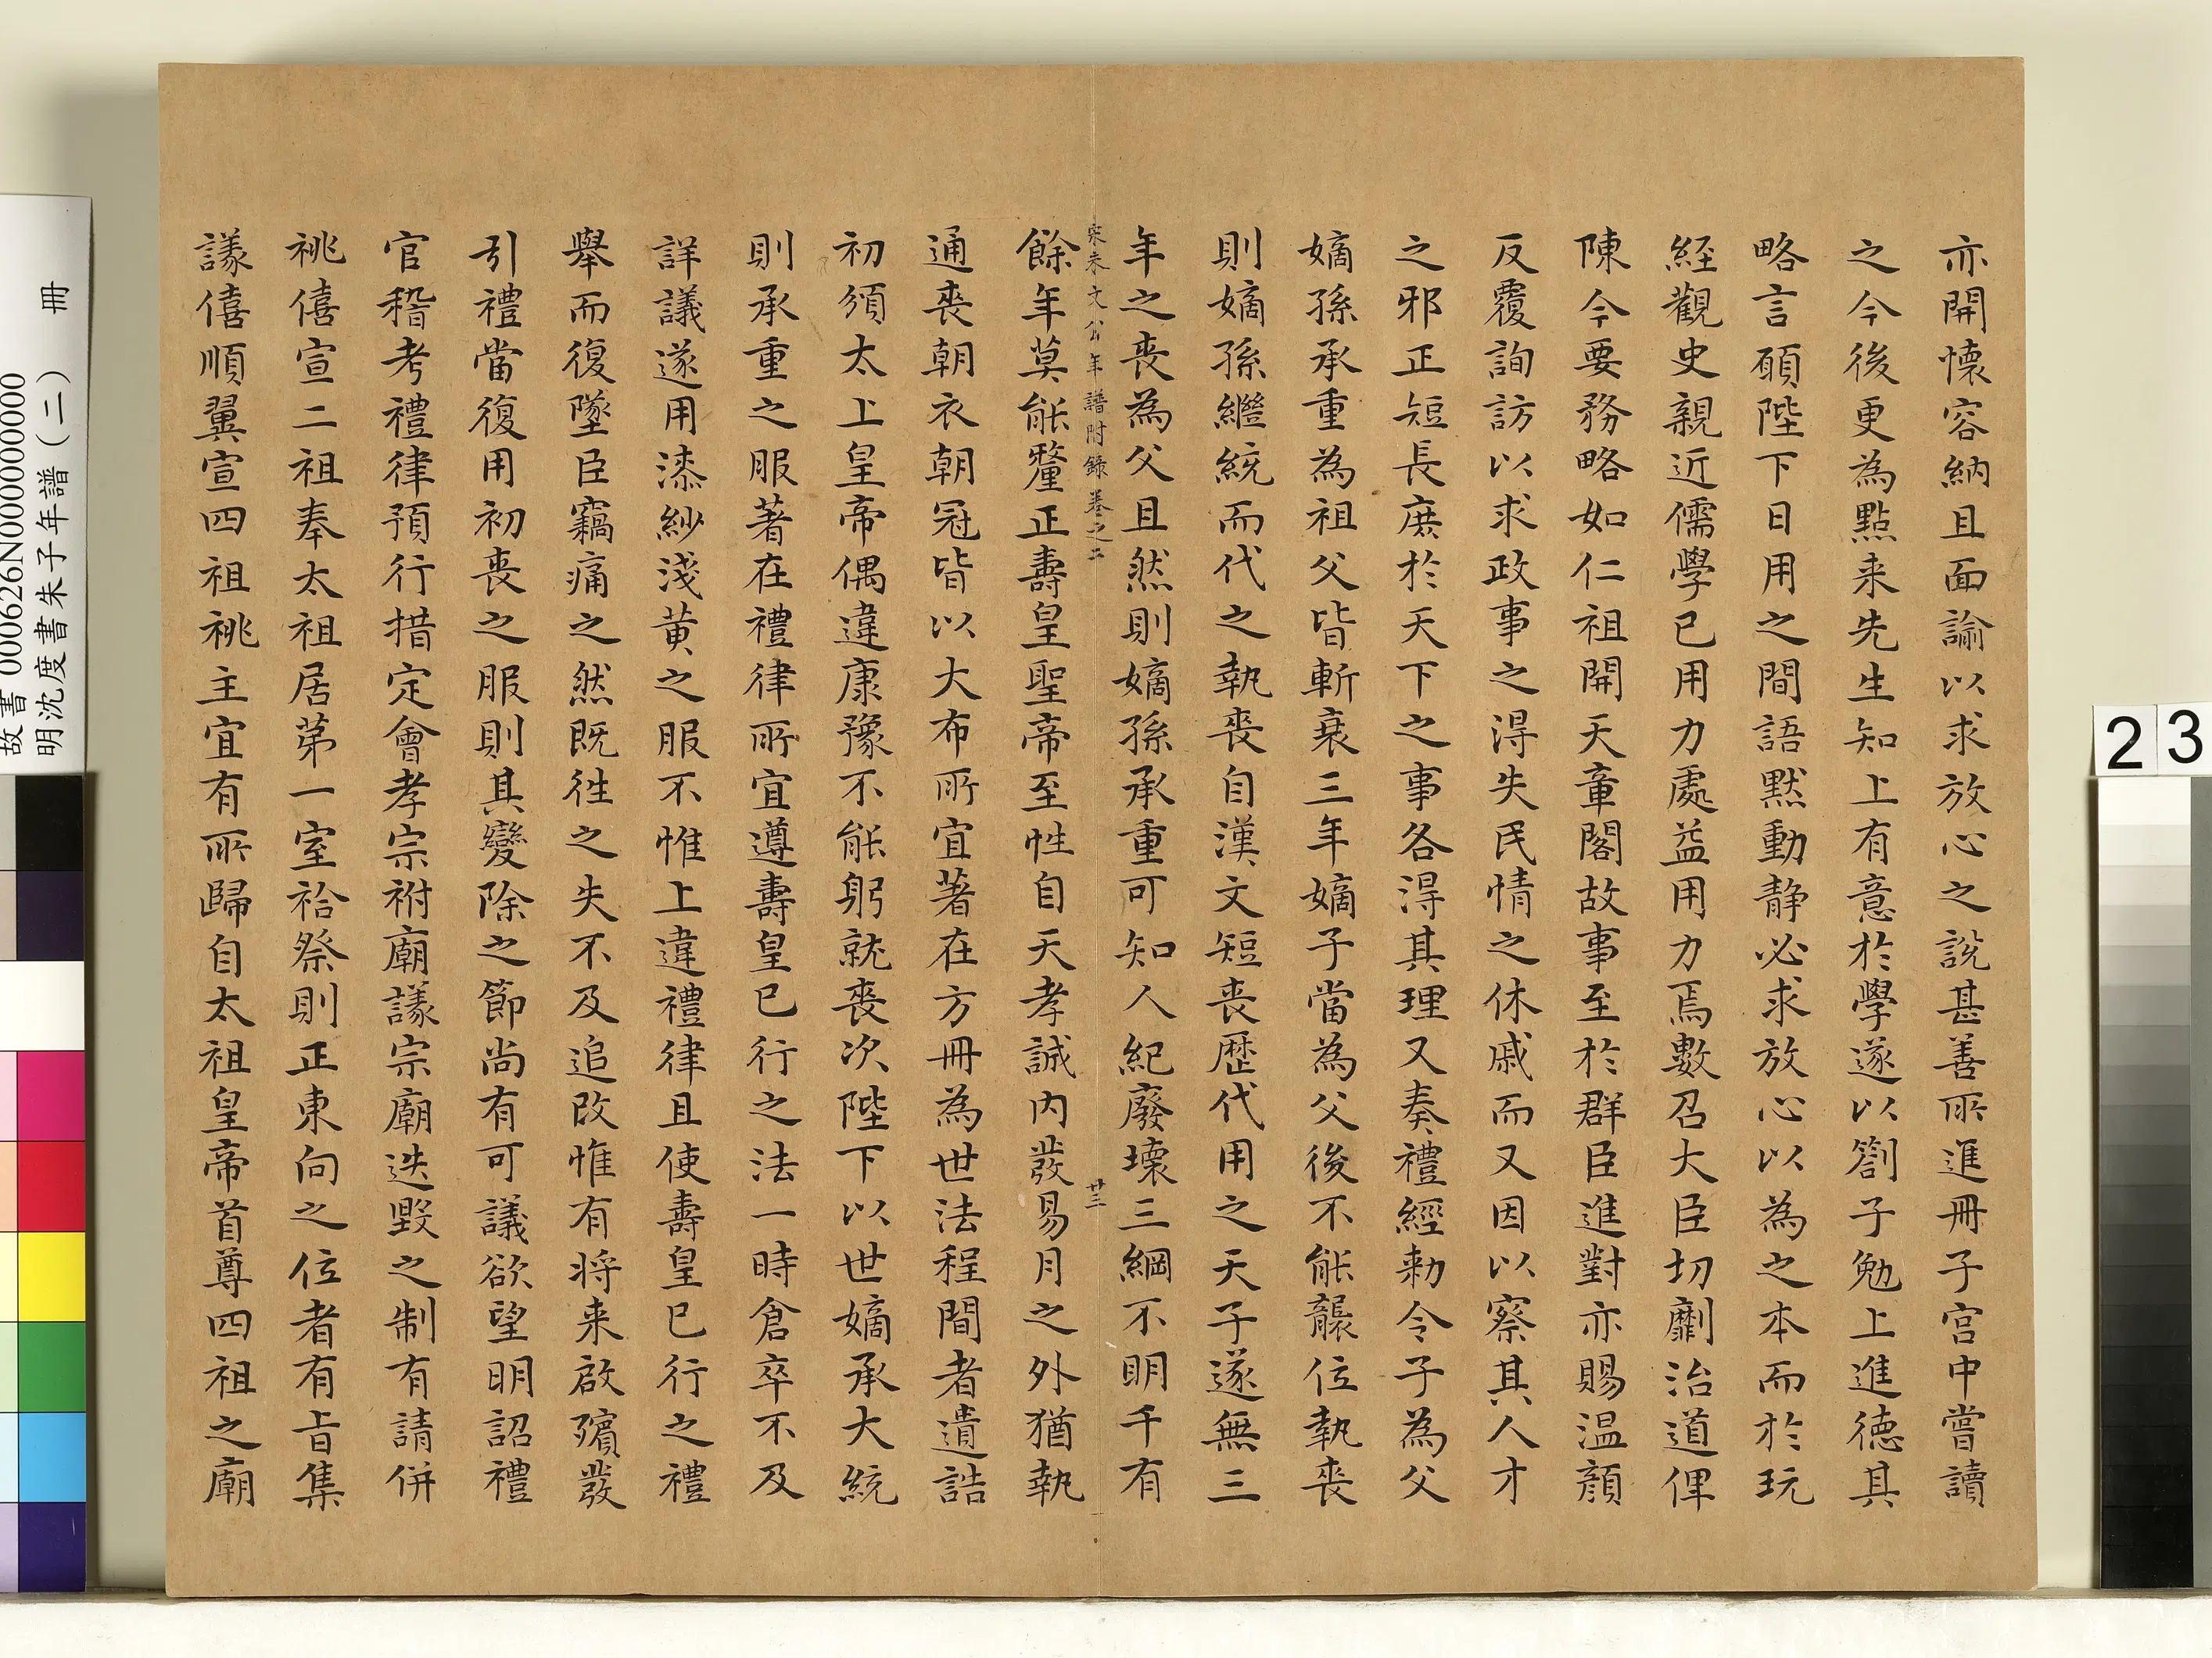 亦開懐容納且面諭以求放心之說甚善所進冊子宫中嘗讀
之今後更為點来先生知上有意於學遂以劄子勉上進徳其
略言願陛下日用之間語默動静必求放心以為之本而於玩
經觀史親近儒學已用力處益用力焉數召大臣切劘治道俾
陳今要務略如仁祖開天章閣故事至於群臣進對亦賜温顔
反覆詢訪以求政事之得失民情之休戚而又因以察其人才
之邪正短長庶於天下之事各得其理又奏禮經勑令子為父
嫡孫承重為祖父皆斬衰三年嫡子當為父後不能襲位執喪
則嫡孫繼統而代之執喪自漢文短喪歷代用之天子遂無三
年之喪為父且然則嫡孫承重可知人紀廢壞三綱不明千有
宋朱文公年譜附錄卷之二
廿三
餘年莫能釐正壽皇聖帝至性自天孝誠内發易月之外猶執
通喪朝衣朝冠皆以大布所宜著在方冊為世法程間者遺誥
初頒太上皇帝偶違康豫不能躬就喪次陛下以世嫡承大統
則承重之服著在禮律所宜遵壽皇已行之法一時倉卒不及
詳議遂用漆紗淺黄之服不惟上違禮律且使壽皇已行之禮
舉而復墜臣竊痛之然既徃之失不及追改惟有將来啟殯發
引禮當復用初喪之服則其變除之節尚有可議欲望明詔禮
官稽考禮律預行措定會孝宗祔廟議宗廟迭毀之制有請併
祧僖宣二祖奉太祖居第一室祫祭則正東向之位者有旨集
議僖順翼宣四祖祧主宜有所歸自太祖皇帝首尊四祖之廟
故書 000626N000000000
明沈度書朱子年譜(二) 冊
23